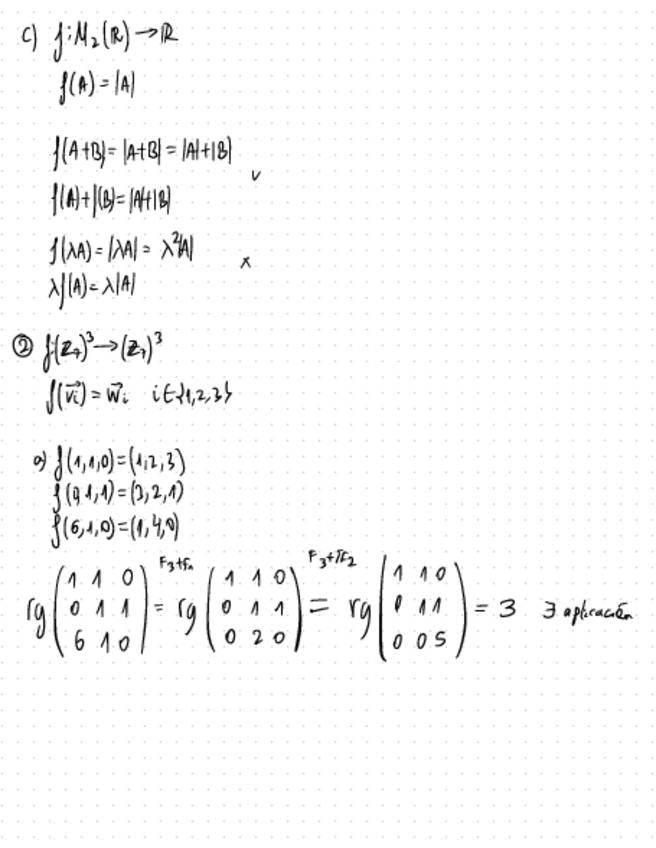 c) f: M₂(ℝ) → ℝ
f(A) = |A|
f(A+B) = |A+B| = |A|+|B|
v
f(A)+f(B) = |A|+|B|
f(λA) = |λA| = λ²|A|
x
λf(A) = λ|A|
② f: (ℤ₇)³ → (ℤ₇)³
f(v⃗ᵢ) = w⃗ᵢ i ∈ {1,2,3}
a) f(1,1,0) = (1,2,3)
f(0,1,1) = (3,2,1)
f(6,1,0) = (1,4,0)
rg (1 1 0 / 0 1 1 / 6 1 0) =^{F₃+F₁} rg (1 1 0 / 0 1 1 / 0 2 0) =^{F₃+5F₂} rg (1 1 0 / 0 1 1 / 0 0 5) = 3 ∃ aplicación